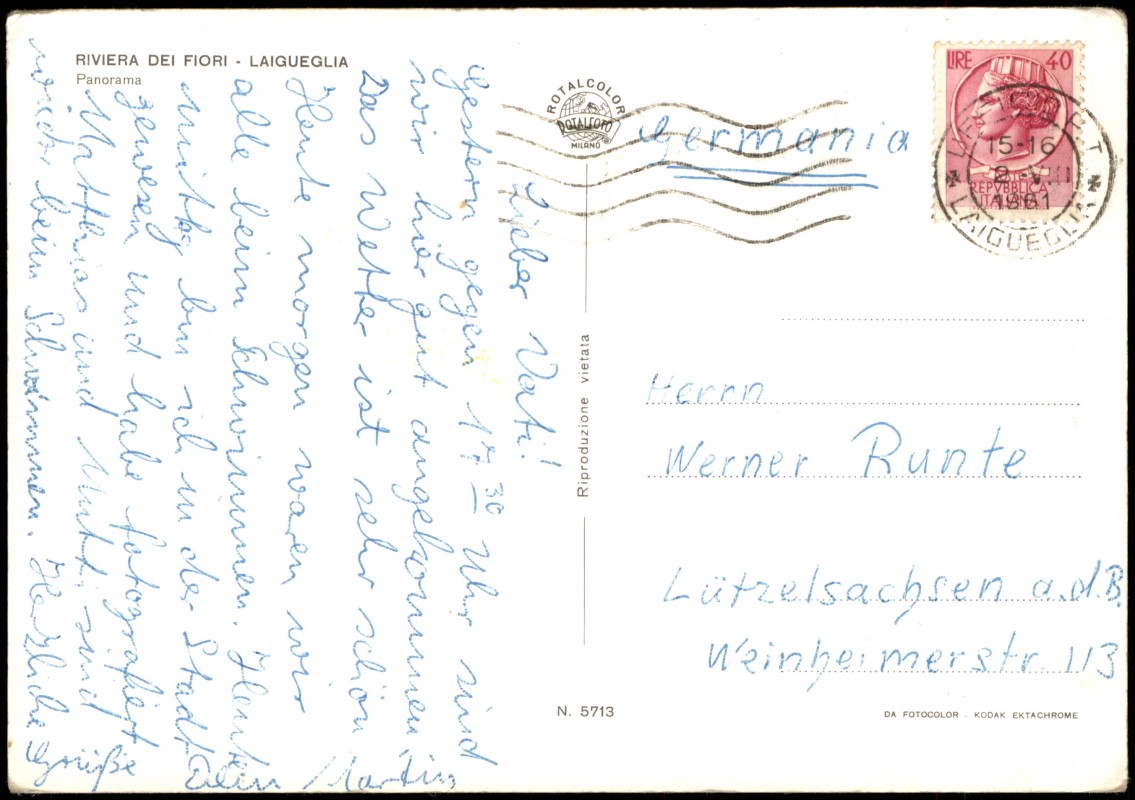 RIVIERA DEI FIORI - LAIGUEGLIA
Panorama
Lieber Vati!
Gestern gegen 17 30 Uhr sind
wir hier gut angekommen.
Das Wetter ist sehr schön
Heute morgen waren wir
alle beim Schwimmen. Heute
mittg bin ich in der Stadt
gewesen und habe fotografiert
Matthias und Mutti sind
wieder beim Schwimmen. Herzliche
Grüße Dein Martin
ROTALCOLOR
ROTALFOTO
MILANO
Germania
LIRE 40
REPVBBLICA
ITALIANA
15-16
2 - VIII
1961
LAIGUEGLIA
Riproduzione vietata
Herrn
Werner Runte
Lützelsachsen a.d.B.
Weinheimerstr. 113
N. 5713
DA FOTOCOLOR - KODAK EKTACHROME